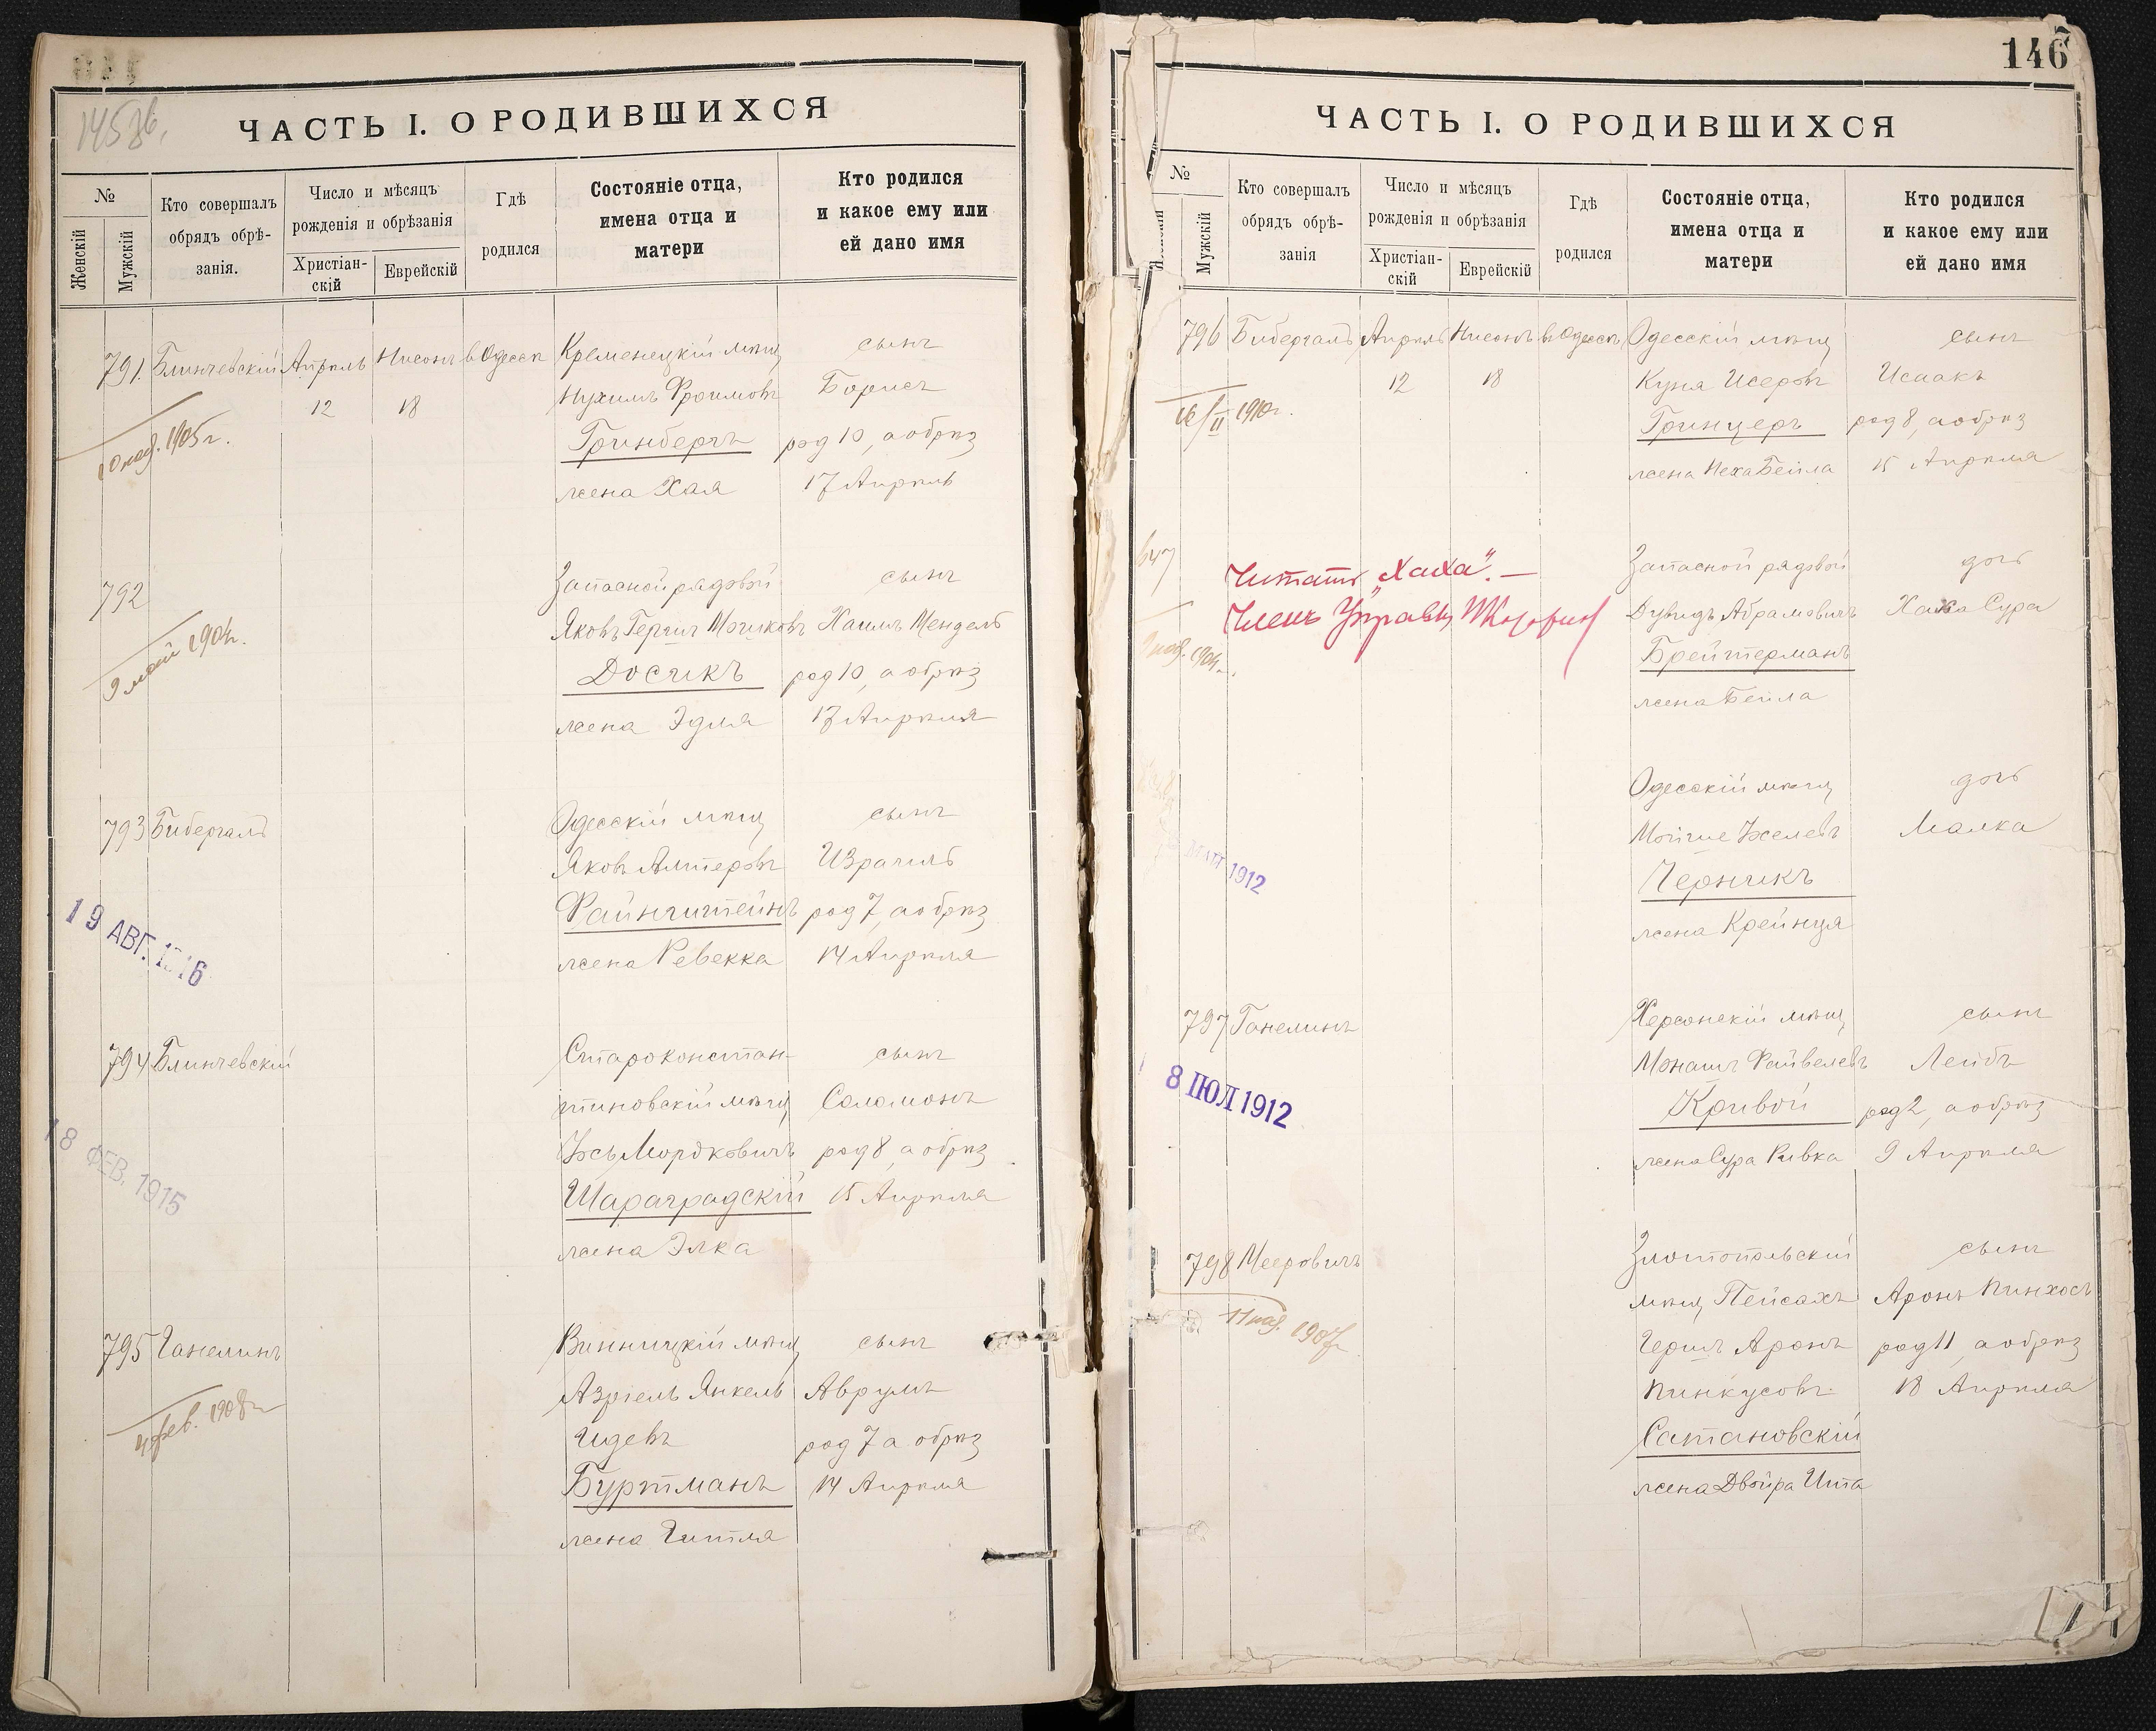 ЧАСТЬ I. О РОДИВШИХСЯ
№
Женскій
Мужскій
Кто совершалъ
обрядъ обрѣ-
занія.
Число и мѣсяцъ
рожденія и обрѣзанія
Христіан-
скій
Еврейскій
Гдѣ
родился
Состояніе отца,
имена отца и
матери
Кто родился
и какое ему или
ей дано имя
791. Блинчевскій Апрѣль Нисонъ въ Одессѣ Кременецкій мѣщ сынъ
12 18 Нухимъ Фроимовъ Борисъ
10 1905 г.
Гринбергъ род 10, а обрѣз
жена Хая 17 Апрѣль
792 Запасной рядовой сынъ
Яковъ Гершъ Мошковъ Хаимъ Мендель
9 май 1904 г.
Досикъ род 10, а обрѣз
жена Эдля 17 Апрѣля
793 Бибергалъ Одесскій мѣщ сынъ
Яковъ Алтеровъ Израиль
Файнштейнъ род 7, а обрѣз
жена Ревекка 14 Апрѣля
19 АВГ.
794 Блинчевскій Староконстан-
тиновскій мѣщ сынъ
Соломонъ
Іось Мордковичъ род 8, а обрѣз
Шараградскій 15 Апрѣля
жена Элка
18 ФЕВ. 1915
795 Ганелинъ Винницкій мѣщ сынъ
Азріель Янкель Аврумъ
Идевъ род 7 а обрѣз
4 фев. 1908 г.
Буртманъ 14 Апрѣля
жена Гитля
146
ЧАСТЬ I. О РОДИВШИХСЯ
№
Мужскій
Кто совершалъ
обрядъ обрѣ-
занія
Число и мѣсяцъ
рожденія и обрѣзанія
Христіан-
скій
Еврейскій
Гдѣ
родился
Состояніе отца,
имена отца и
матери
Кто родился
и какое ему или
ей дано имя
796 Бибергалъ Апрѣль Нисонъ въ Одессѣ Одесскій мѣщ сынъ
12 18 Куня Исеровъ Исаакъ
16/II 1910 г.
Гринцеръ род 8, а обрѣз
жена Неха Бейла 15 Апрѣля
647 Запасной рядовой дочь
Читать „Хаха“. —
Членъ Управы
Дувидъ Абрамовичъ Хаха Сура
1904 г.
Брейтерманъ
жена Бейла
Одесскій мѣщ дочь
Мойше Іоселевъ Малка
1912
Черникъ
жена Крейнця
797 Ганелинъ Херсонскій мѣщ сынъ
Монашъ Файвелевъ Лейбъ
8 ІЮЛ 1912
Кривой род 2, а обрѣз
жена Сура Ривка 9 Апрѣля
798 Мееровичъ Златопольскій сынъ
мѣщ Пейсахъ Аронъ Пинхосъ
1907 г.
Гершъ Аронъ род 11, а обрѣз
Пинкусовъ 18 Апрѣля
Сатановскій
жена Двойра Ита